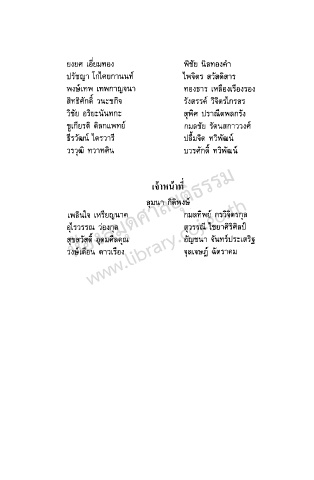 ยงยศ เอี่ยมทอง
ปรัชญา โกไศยกานนท์
พงษ์เทพ เทพกาญจนา
สิทธิศักดิ์ วนะชกิจ
วิชัย อริยะนันทกะ
ชูเกียรติ ดิลกแพทย์
ธีรวัฒน์ ไตรวารี
วรวุฒิ ทวาทศิน
พิชัย นิลทองคำ
ไพจิตร สวัสดิสาร
ทองธาร เหลืองเรืองรอง
รังสรรค์ วิจิตรไกรสร
สุพิศ ปราณีตพลกรัง
กมลชัย รัตนสกาววงศ์
ปลื้มจิต ทวิพัฒน์
บวรศักดิ์ ทวิพัฒน์
เจ้าหน้าที่
ลุมนา กีติพงษ์
เพลินใจ เหรียญนาค
อุไรวรรณ ว่องกุล
สุขสวัสดิ์ อุดมศีลคุณ
วงษ์เดือน ดาวเรือง
กมลทิพย์ กรวิจิตรกุล
สุวรรณี ไชยาศิริศิลป์
อัญชนา จันทร์ประเสริฐ
จุลเจษฎ์ ฉัตราคม
www.library.